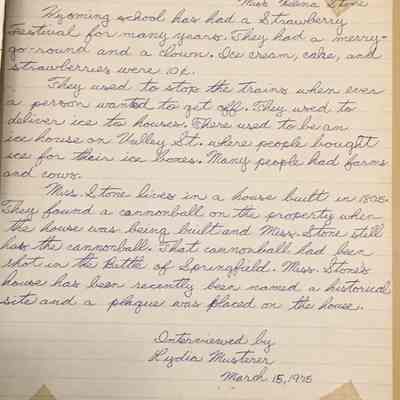 Miss Helena Stone
Wyoming school has had a Strawberry
Festival for many years. They had a merry-
go-round and a clown. Ice cream, cake, and
strawberries were 10¢.
They used to stop the trains when ever
a person wanted to get off. They used to
deliver ice to houses. There used to be an
ice house on Valley St. where people bought
ice for their ice boxes. Many people had farms
and cows.
Miss. Stone lives in a house built in 1875.
They found a cannonball on the property when
the house was being built and Miss. Stone still
has the cannonball. That cannonball had been
shot in the Battle of Springfield. Miss. Stone's
house has been recently been named a historical
site and a plaque was placed on the house.
Interviewed by
Lydia Musterer
March 15, 1975